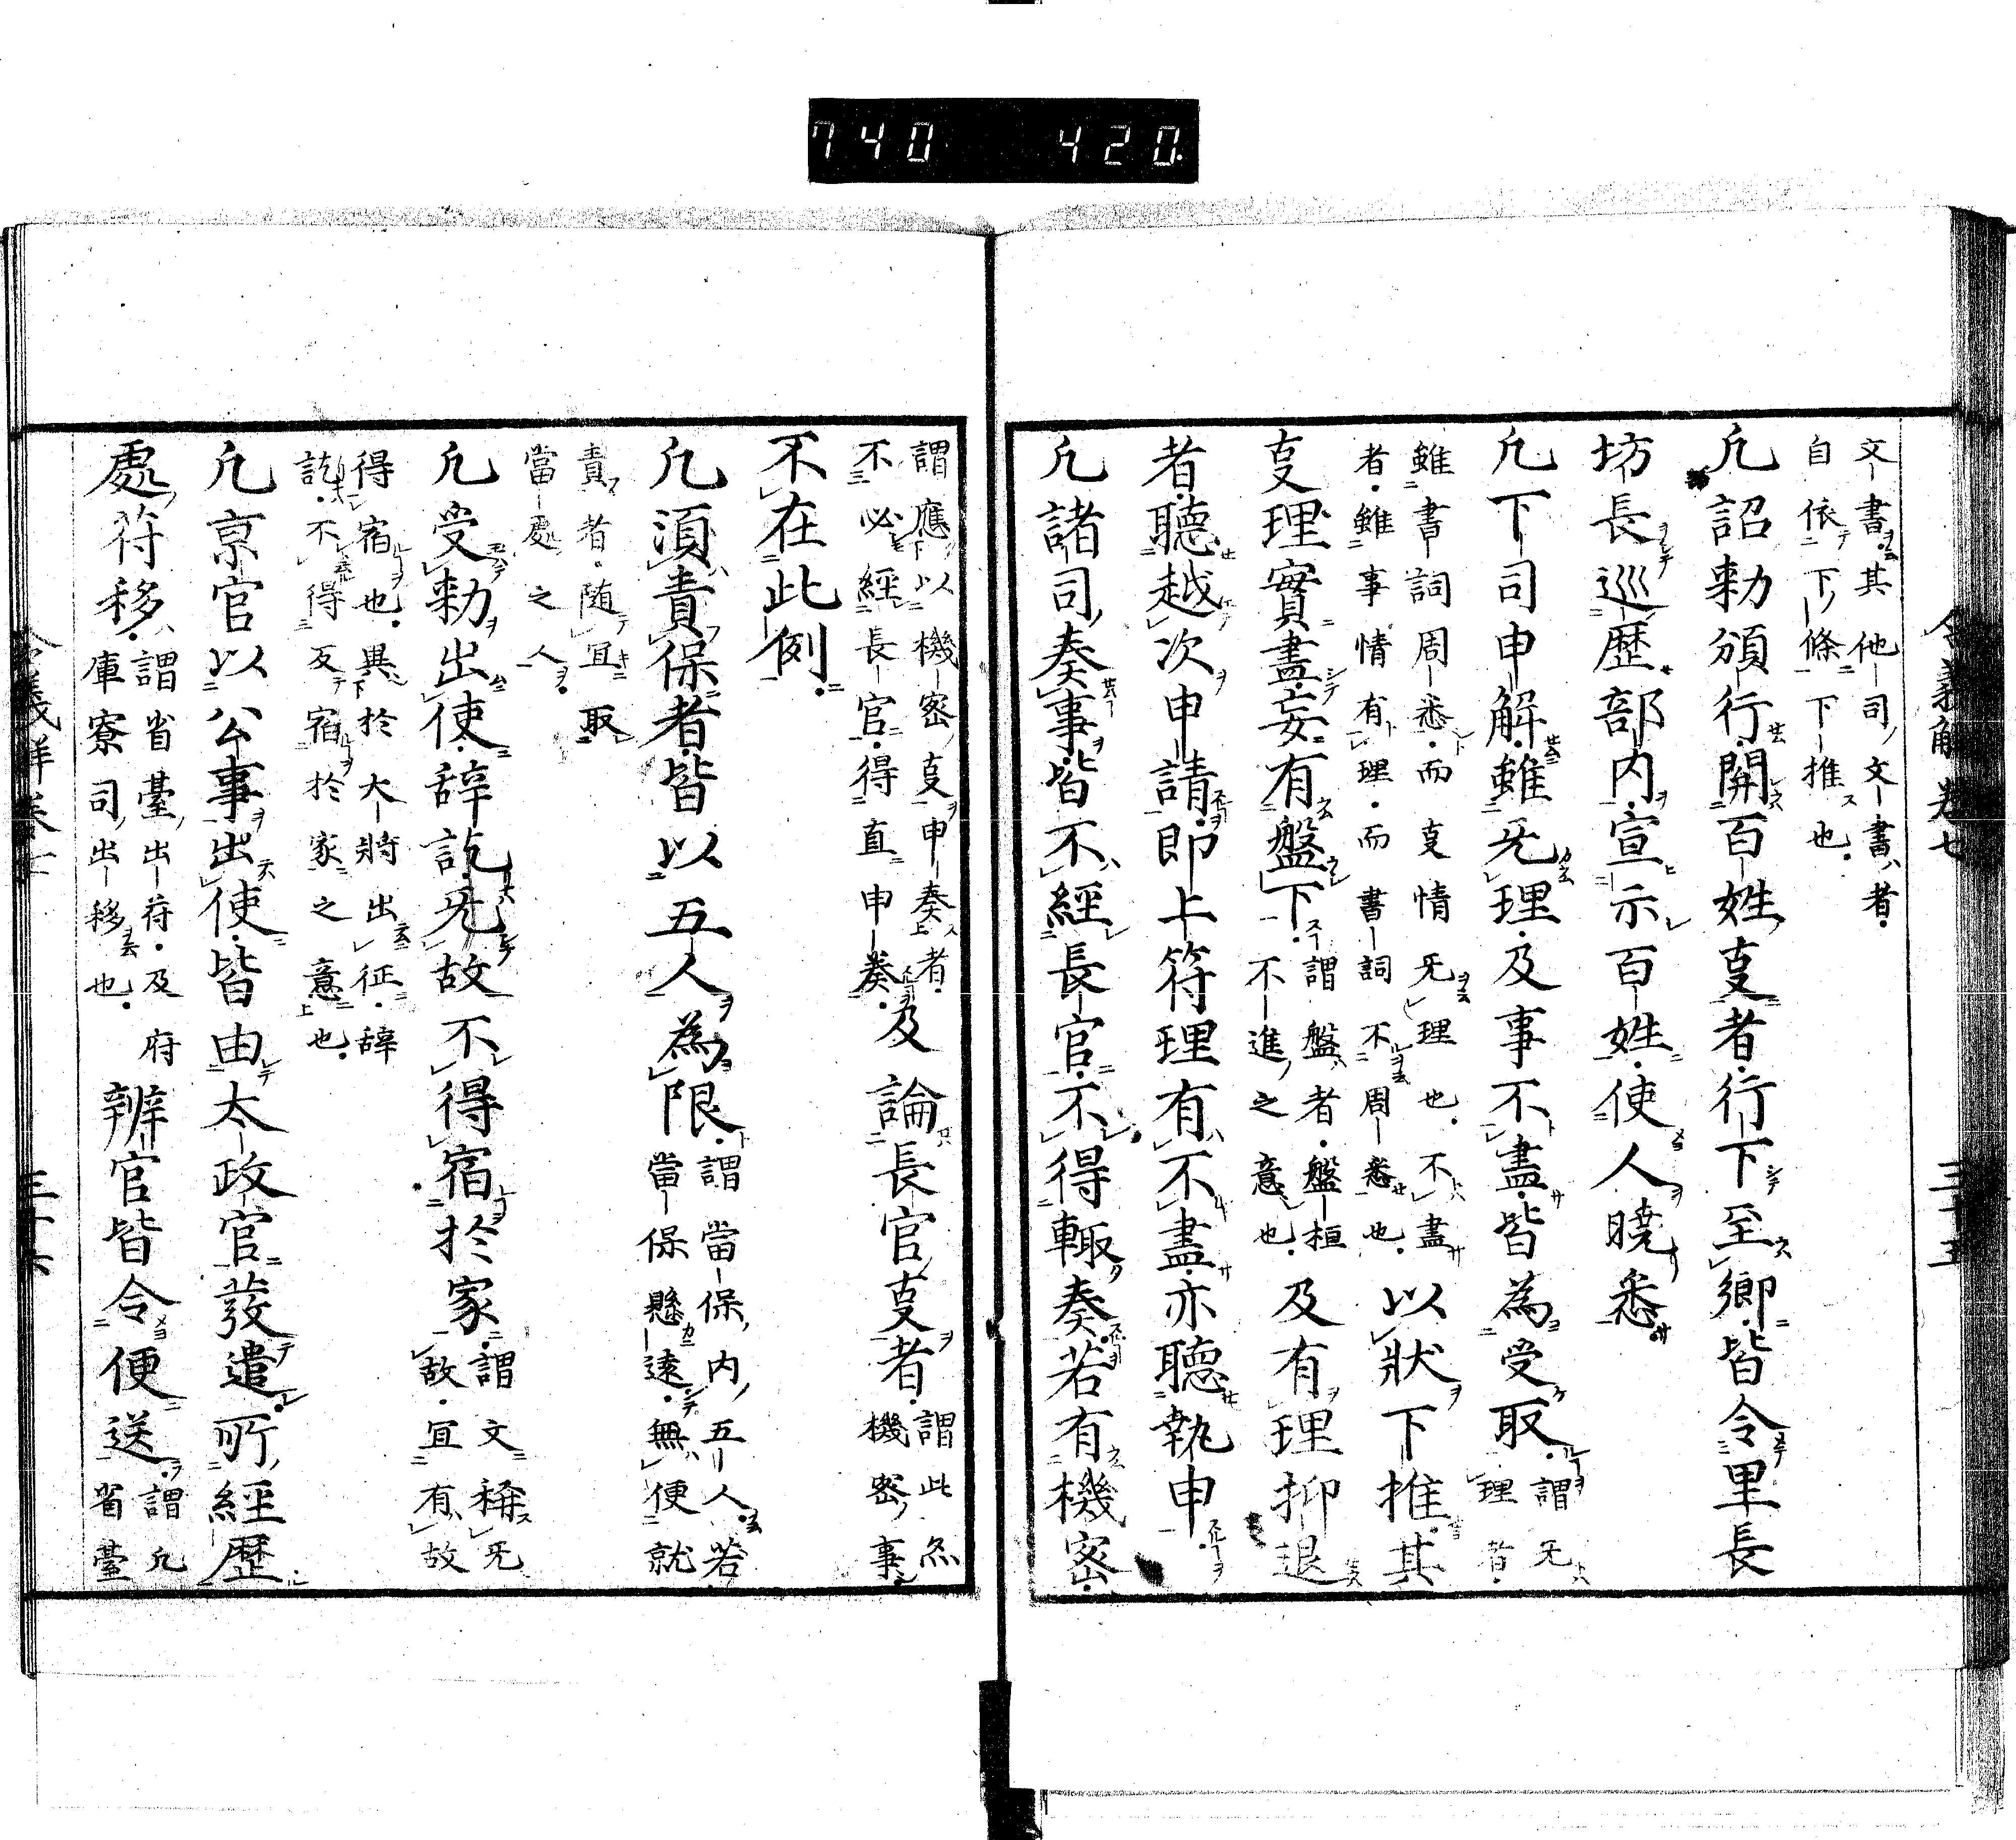 740 420
令義解卷七
三十五
文書其他司文書者
自依下條下推也
凡詔勅頒行開百姓㕝者行下至郷皆令里長
坊長巡歴部内宣示百姓使人曉悉
凡下司申解雖旡理及事不盡皆爲受取謂旡理者
雖書詞周悉而㕝情旡理也不盡
者雖事情有理而書詞不周悉也以状下推其
㕝理實盡妄有盤下謂盤者盤桓不進之意也及有理抑退
者聽越次申請即上符理有不盡亦聽執申
凡諸司奏事皆不經長官不得輙奏若有機密
謂應以機密㕝申奏者
不必經長官得直申奏及論長官㕝者謂此亦機密事
不在此例
凡須責保者皆以五人爲限謂當保内五人若當保懸遠無便就
責者随宜取
當處之人
凡受勅出使辞訖旡故不得宿於家謂文稱旡故宜有故
得宿也異於大將出征辞
訖不得反宿於家之意也
凡京官以公事出使皆由太政官發遣所經歴
處符移謂省臺出符及府庫寮司出移也辨官皆令便送謂凡省臺
三十六